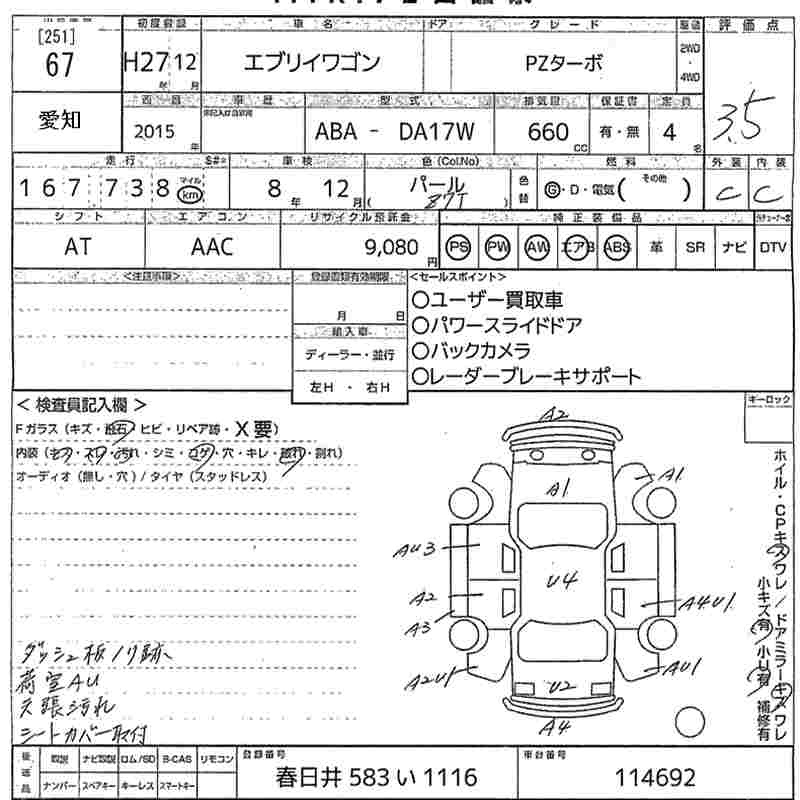 [251]
67
初度登録 車名 ドア グレード
H27 12 エブリイワゴン PZターボ
年 月
2WD
・
4WD
評価点
3.5
愛知
西暦 車歴 型式 排気量 保証書 定員
2015 年 ABA - DA17W 660 CC 有・無 4 名
走行 S#* 車検 色(Col.No) 燃料 外装 内装
167,738 マイル km 8 年 12 月 パール 色替 G・D・電気( その他 ) C C
( Z7T )
シフト エアコン リサイクル預託金 純正装備品
AT AAC 9,080 円 PS PW AW エアB ABS 革 SR ナビ DTV
<注意事項> 登録書類有効期限 <セールスポイント>
月 日
〇ユーザー買取車
〇パワースライドドア
輸入車
ディーラー・並行
〇バックカメラ
左H ・ 右H
〇レーダーブレーキサポート
キーロック
< 検査員記入欄 >
Fガラス(キズ・飛石 ヒビ・リペア跡・X要)
内装(キズ・スレ・汚れ・シミ・コゲ・穴・キレ・擦れ・割れ)
オーディオ(無し・穴)/タイヤ(スタッドレス)
A2
A1 A1
AU3
U4
A2 A4U1
A3
A2U1 U2 AU1
A4
ホイル・CPキズワレ/ドアミラーキズワレ
小キズ有 小U有 補修有
ダッシュ板ノリ跡
荷室AU
天張汚れ
シートカバー取付
後送品 取説 ナビ取説 ロム/SD B-CAS リモコン 登録番号 車台番号
ナンバー スペアキー キーレス スマートキー 春日井 583 い 1116 114692